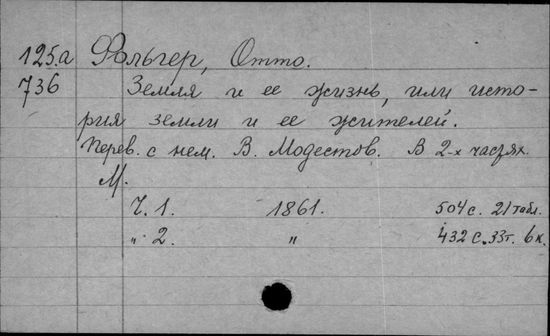 125.а Фольгер, Отто.
736 Земля и ее жизнь, или исто-
рия земли и ее жителей.
Перев. с нем. В. Модестов. В 2-х частях.
М.
Ч. 1. 1861. 504 с. 21 табл.
„ 2. „ 432 с. 33т. 6 к.